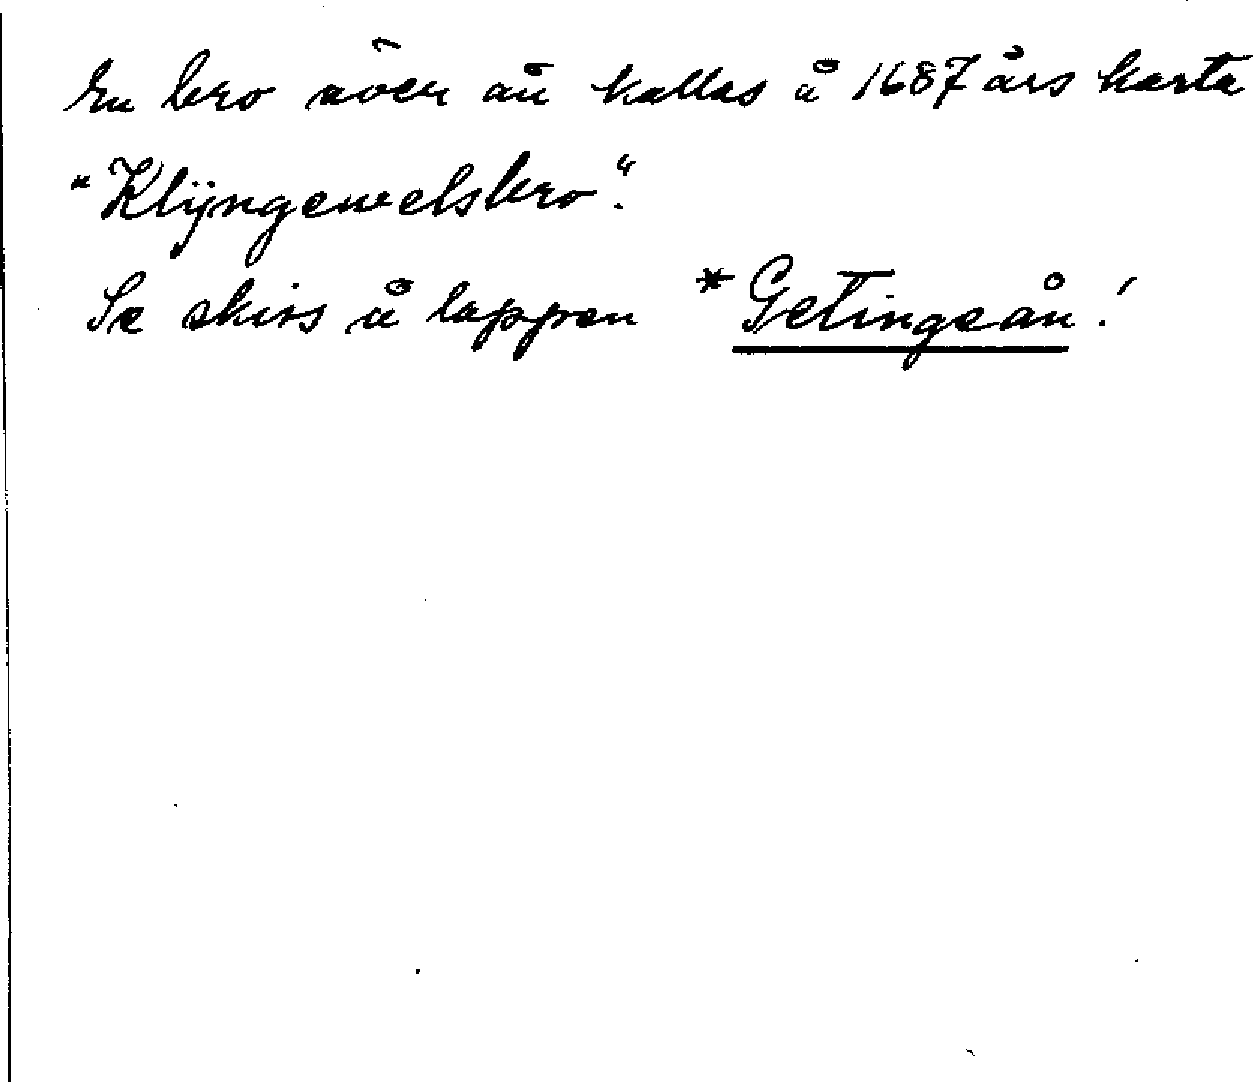 En bro över ån kallas å 1687 års karta
"Klijngewelsbro".
Se skiss å lappen *Getingeån!